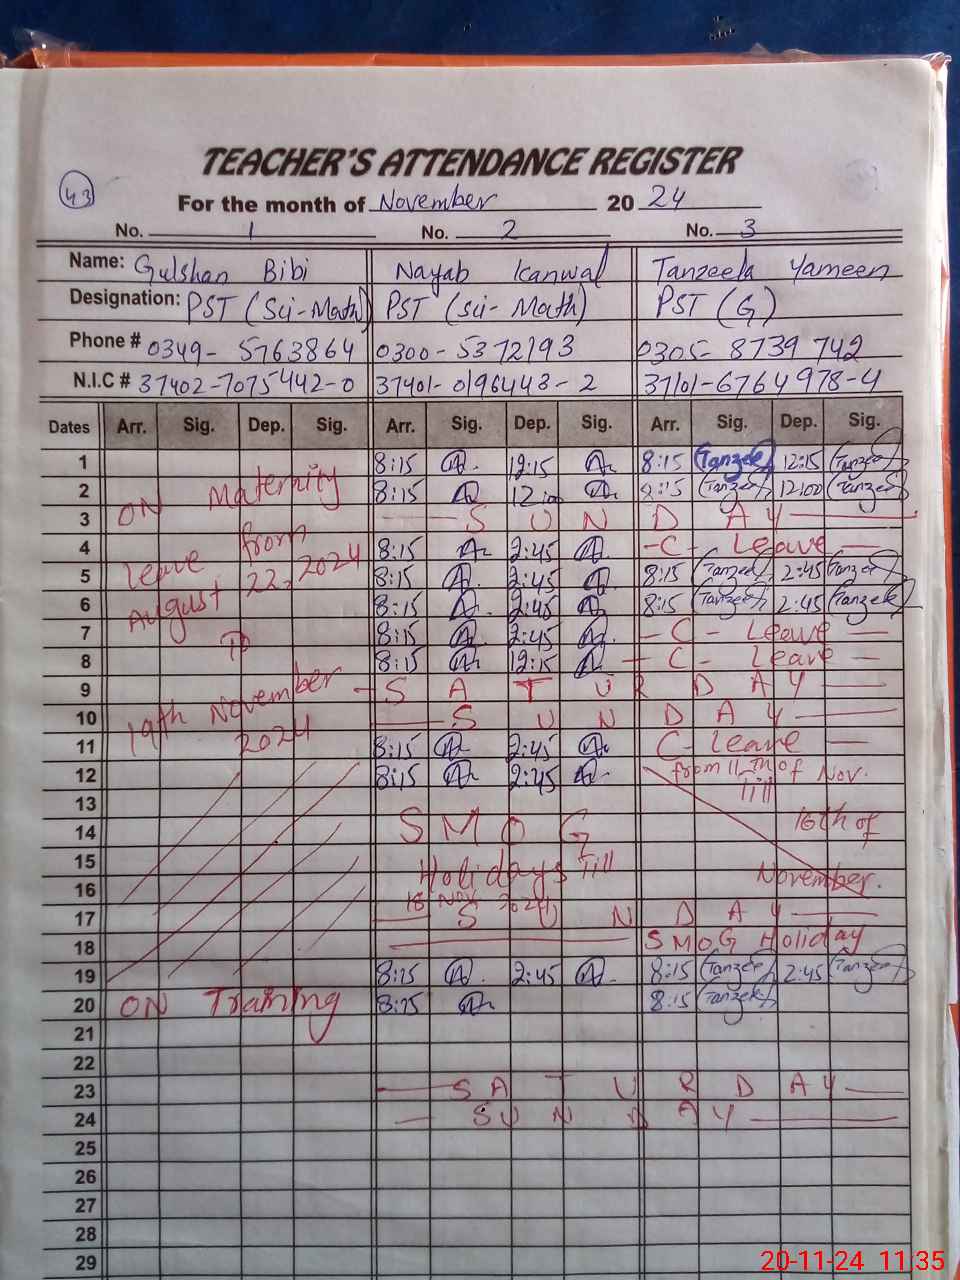 TEACHER'S ATTENDANCE REGISTER
43
For the month of November 2024
No. 1 No. 2 No. 3
Name: Gulshan Bibi Nayab Kanwal Tanzeela Yameen
Designation: PST (Sci-Math) PST (sci-Math) PST (G)
Phone # 0349-5763864 0300-5372193 0305-8739742
N.I.C # 37402-7075442-0 37401-0196443-2 37101-6764978-4
Dates Arr. Sig. Dep. Sig. Arr. Sig. Dep. Sig. Arr. Sig. Dep. Sig.
1 8:15 12:15 8:15 Tanzee 12:15 Tanzee
2 ON Maternity 8:15 12:00 8:15 Tanzee 12:00 Tanzee
3 SUNDAY
4 leave from 8:15 2:45 -C- Leave
5 August 22, 2024 8:15 2:45 8:15 Tanzee 2:45 Tanzee
6 8:15 2:45 8:15 Tanzee 2:45 Tanzee
7 To 8:15 2:45 -C- Leave
8 8:15 12:15 -C- Leave
9 19th November SATURDAY
10 2024 SUNDAY
11 8:15 2:45 C-Leave
12 8:15 2:45 from 11_th of Nov.
13 Till
14 SMOG 16th of
15 Holidays Till
16 18 Nov 2024 November.
17 SUNDAY
18 SMOG Holiday
19 8:15 2:45 8:15 Tanzee 2:45 Tanzee
20 ON Training 8:15 8:15 Tanzee
21
22
23 SATURDAY
24 SUNDAY
25
26
27
28
29
20-11-24 11:35